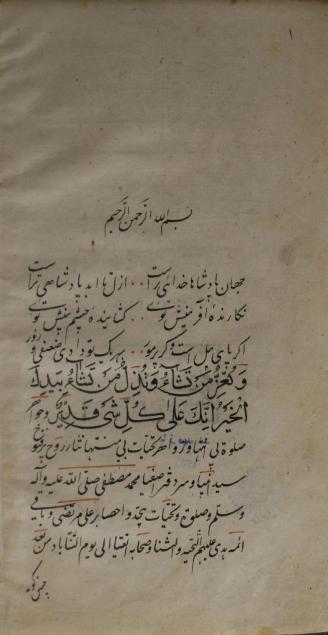 ۱
بسم الله الرحمن الرحیم
جهان پادشاها خدائی تراست ۰۰ ازل تا ابد پادشاهی تراست
نگارندهٔ آفرینش توی ۰۰ گشایندهٔ چشم بینش توی
اگر پای پیل است و گر پر مور ۰۰ بهر یک تو دادی ضعیفی و زور
وَتُعِزُّ مَنْ تَشَاءُ وَتُذِلُّ مَنْ تَشَاءُ بِیَدِكَ
الْخَیْرُ اِنَّكَ عَلیٰ كُلِّ شَیْءٍ قَدِیْرٌ
صلوة بی انتها و تحیات بی منتها نثار روح پر فتوح
سید انبیا و سر دفتر اصفیا محمد مصطفی صلی الله علیه وآله
وسلم و صلوة و تحیات بیحد و احصا بر علی مرتضی و باقی
ائمه هدی علیهم التحیه والثنا و صحابه اتقیا الی یوم التناد من بعد
چنین گوید